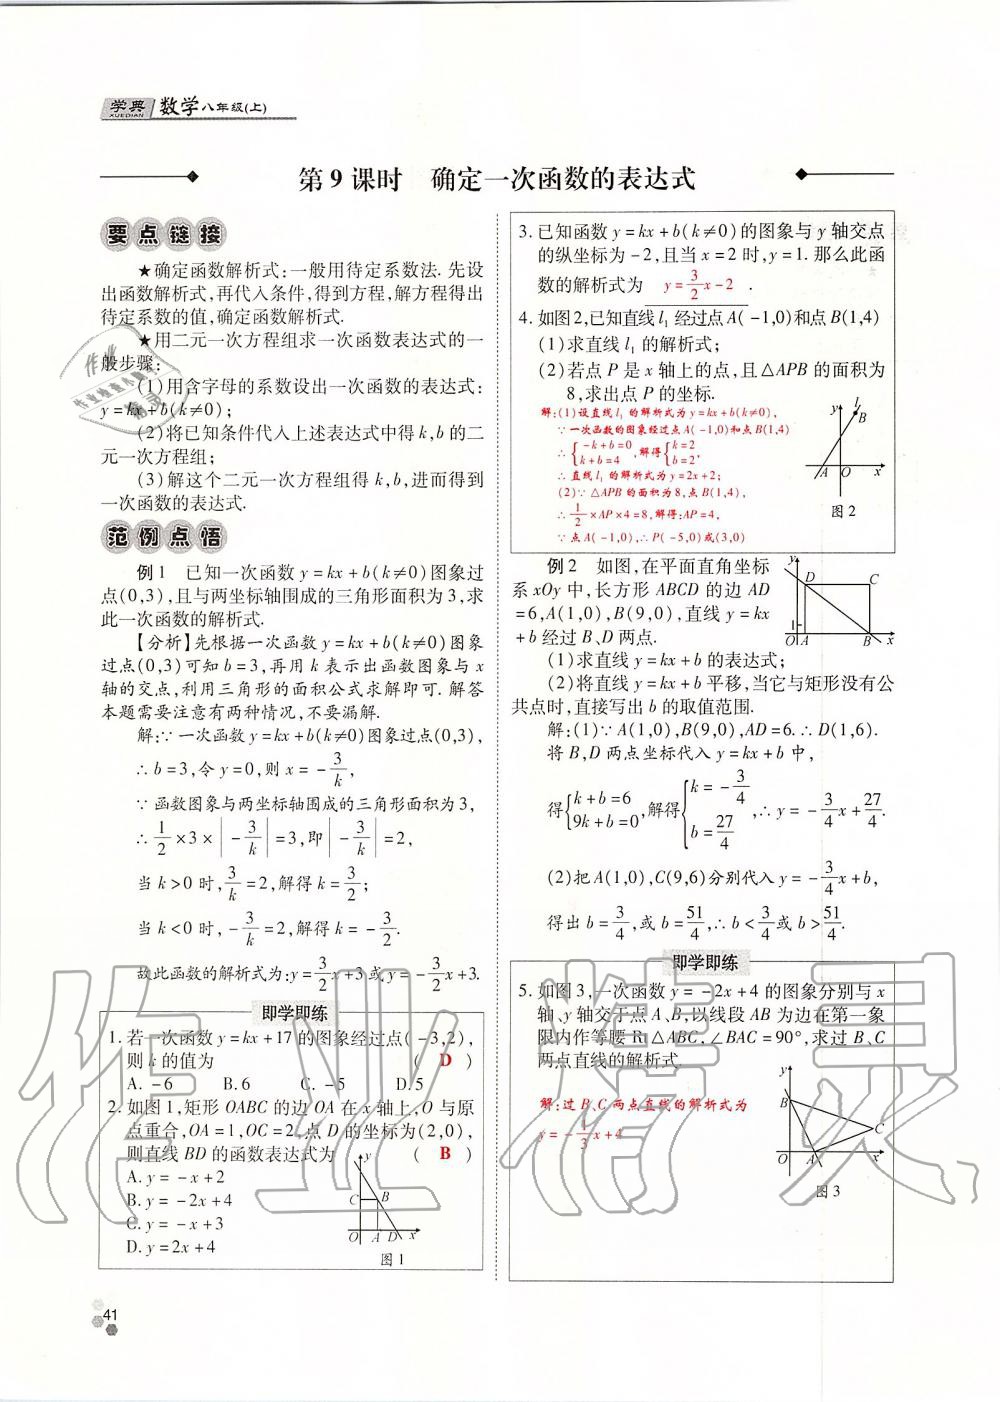 学典 数学八年级(上)
XUEDIAN
第9课时 确定一次函数的表达式
要点链接
★确定函数解析式:一般用待定系数法.先设
出函数解析式,再代入条件,得到方程,解方程得出
待定系数的值,确定函数解析式.
★用二元一次方程组求一次函数表达式的一
般步骤:
(1)用含字母的系数设出一次函数的表达式:
y=kx+b(k≠0);
(2)将已知条件代入上述表达式中得k,b的二
元一次方程组;
(3)解这个二元一次方程组得k,b,进而得到
一次函数的表达式.
范例点悟
例1 已知一次函数y=kx+b(k≠0)图象过
点(0,3),且与两坐标轴围成的三角形面积为3,求
此一次函数的解析式.
【分析】先根据一次函数y=kx+b(k≠0)图象
过点(0,3)可知b=3,再用k表示出函数图象与x
轴的交点,利用三角形的面积公式求解即可.解答
本题需要注意有两种情况,不要漏解.
解:∵一次函数y=kx+b(k≠0)图象过点(0,3),
∴b=3,令y=0,则x=-3/k,
∵函数图象与两坐标轴围成的三角形面积为3,
∴1/2×3×|-3/k|=3,即|-3/k|=2,
当k>0时,3/k=2,解得k=3/2;
当k<0时,-3/k=2,解得k=-3/2.
故此函数的解析式为:y=3/2x+3或y=-3/2x+3.
即学即练
1.若一次函数y=kx+17的图象经过点(-3,2),
则k的值为 ( D )
A.-6 B.6 C.-5 D.5
2.如图1,矩形OABC的边OA在x轴上,O与原
点重合,OA=1,OC=2,点D的坐标为(2,0),
则直线BD的函数表达式为 ( B )
A.y=-x+2
B.y=-2x+4
C.y=-x+3
D.y=2x+4
y
C B
O A D x
图1
3.已知函数y=kx+b(k≠0)的图象与y轴交点
的纵坐标为-2,且当x=2时,y=1.那么此函
数的解析式为 y=3/2x-2 .
4.如图2,已知直线l₁经过点A(-1,0)和点B(1,4)
(1)求直线l₁的解析式;
(2)若点P是x轴上的点,且△APB的面积为
8,求出点P的坐标.
解:(1)设直线l₁的解析式为y=kx+b(k≠0),
∵一次函数的图象经过点A(-1,0)和点B(1,4)
∴{-k+b=0 k+b=4,解得{k=2 b=2,
∴直线l₁的解析式为y=2x+2;
(2)∵△APB的面积为8,点B(1,4),
∴1/2×AP×4=8,解得:AP=4,
∵点A(-1,0),∴P(-5,0)或(3,0)
y l
B
A O x
图2
例2 如图,在平面直角坐标
系xOy中,长方形ABCD的边AD
=6,A(1,0),B(9,0),直线y=kx
+b经过B、D两点.
y
D C
1
O A B x
(1)求直线y=kx+b的表达式;
(2)将直线y=kx+b平移,当它与矩形没有公
共点时,直接写出b的取值范围.
解:(1)∵A(1,0),B(9,0),AD=6.∴D(1,6).
将B,D两点坐标代入y=kx+b中,
得{k+b=6 9k+b=0,解得{k=-3/4 b=27/4,∴y=-3/4x+27/4.
(2)把A(1,0),C(9,6)分别代入y=-3/4x+b,
得出b=3/4,或b=51/4,∴b<3/4或b>51/4.
即学即练
5.如图3,一次函数y=-2x+4的图象分别与x
轴、y轴交于点A、B,以线段AB为边在第一象
限内作等腰Rt△ABC,∠BAC=90°,求过B、C
两点直线的解析式.
解:过B、C两点直线的解析式为
y=-1/3x+4
y
B
C
O A x
图3
41
作业精灵